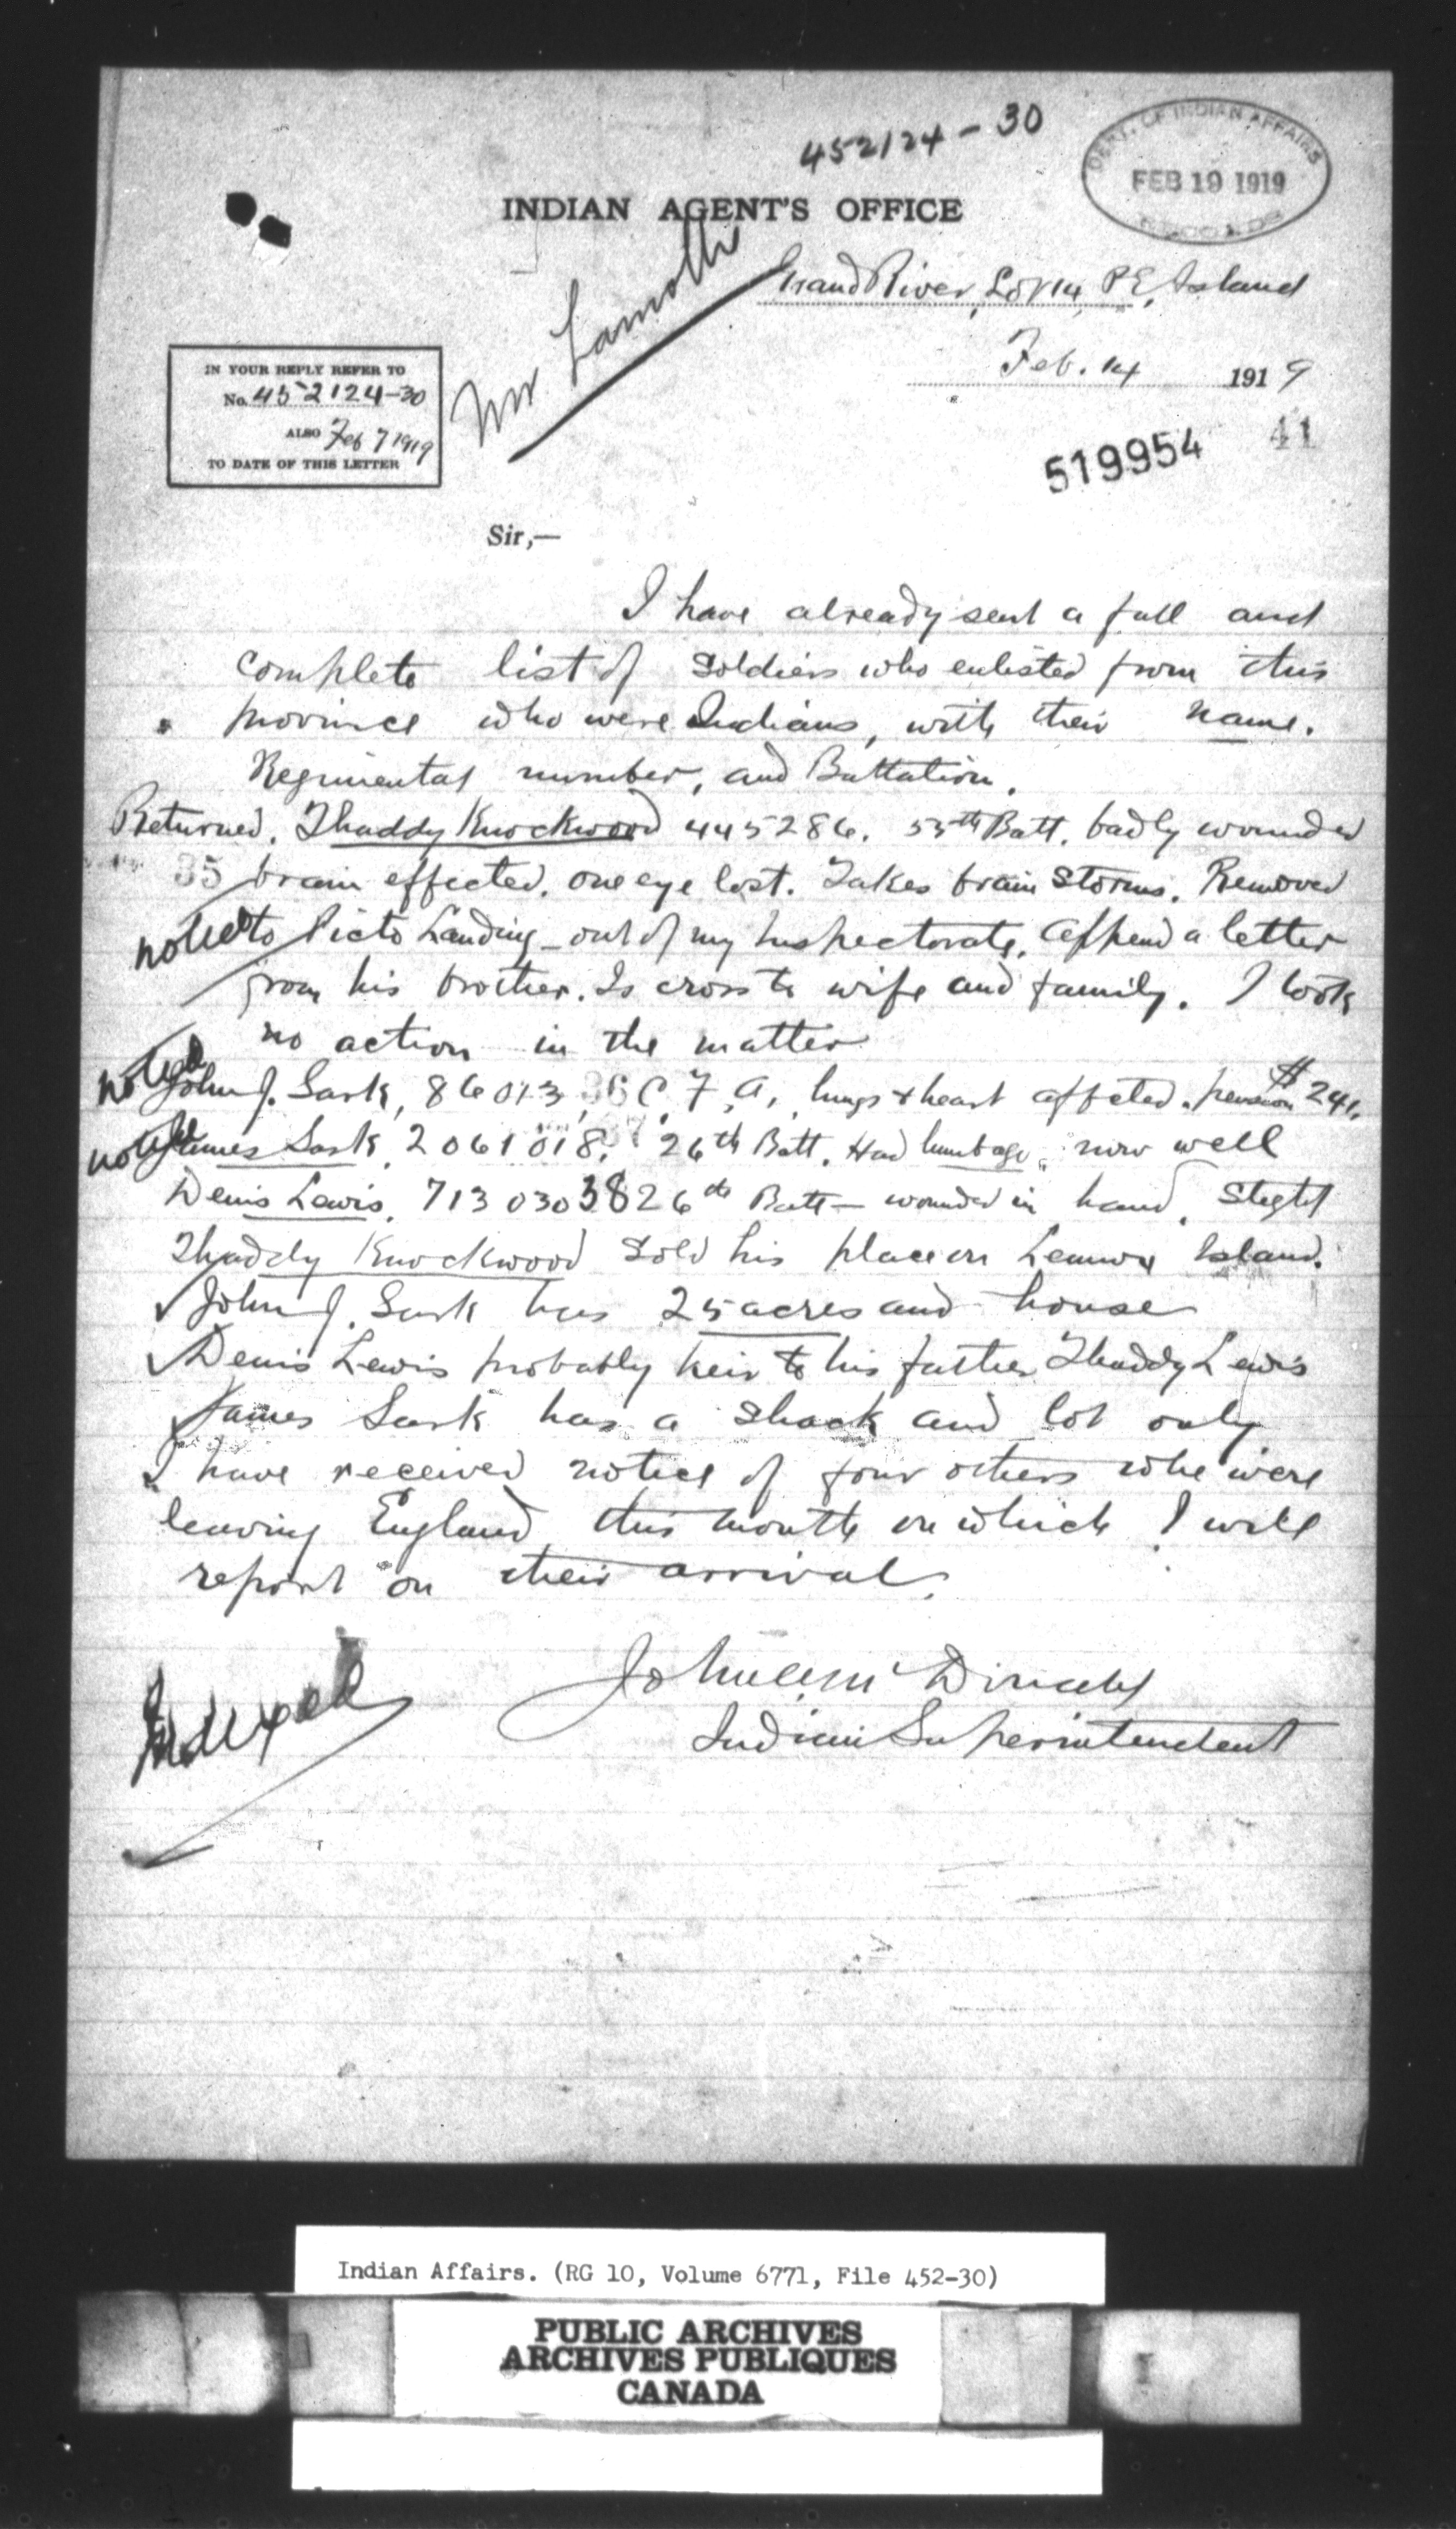 452124-30
DEPT. OF INDIAN AFFAIRS
FEB 19 1919
RECORDS
INDIAN AGENT'S OFFICE
Mr Lamothe
Grand River, Lot 14, P E, Island
Feb. 14 1919
IN YOUR REPLY REFER TO
No. 452124-30
ALSO Feb 7 1919
TO DATE OF THIS LETTER
519954
41
Sir,—
I have already sent a full and
complete list of soldiers who enlisted from this
province who were Indians, with their name.
Regimental number, and Battation.
Returned. Thaddy Knockwood 445286. 55th Batt. badly wounded
35 brain effected. one eye lost. Takes brain storms. Removed
noted to Picto Landing - out of my Inspectorate. Append a letter
from his brother. Is cross to wife and family. I took
no action in the matter
noted John J. Sark, 86013 36 C, F, A, lungs & heart affected. pension $ 241.
noted James Sark, 2061018. 37 26th Batt. Had lumbago, now well
Denis Lewis, 713030 38 26th Batt - wounded in hand. Slight
Thaddy Knockwood sold his place on Lennox Island.
John J. Sark has 25 acres and house
Denis Lewis probably heir to his father Thaddy Lewis
James Sark has a shack and lot only
I have received notice of four others who were
leaving England this month on which I will
report on their arrival.
Indexed
Indian Superintendent
Indian Affairs. (RG 10, Volume 6771, File 452-30)
PUBLIC ARCHIVES
ARCHIVES PUBLIQUES
CANADA